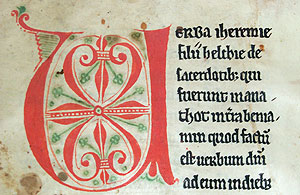 UERBA iheremie
filii helchie de
sacerdotib; qui
fuerunt in ana
thot in t̄ra benia
min quod factū
est uerbum dn̄i
ad eum in dieb;